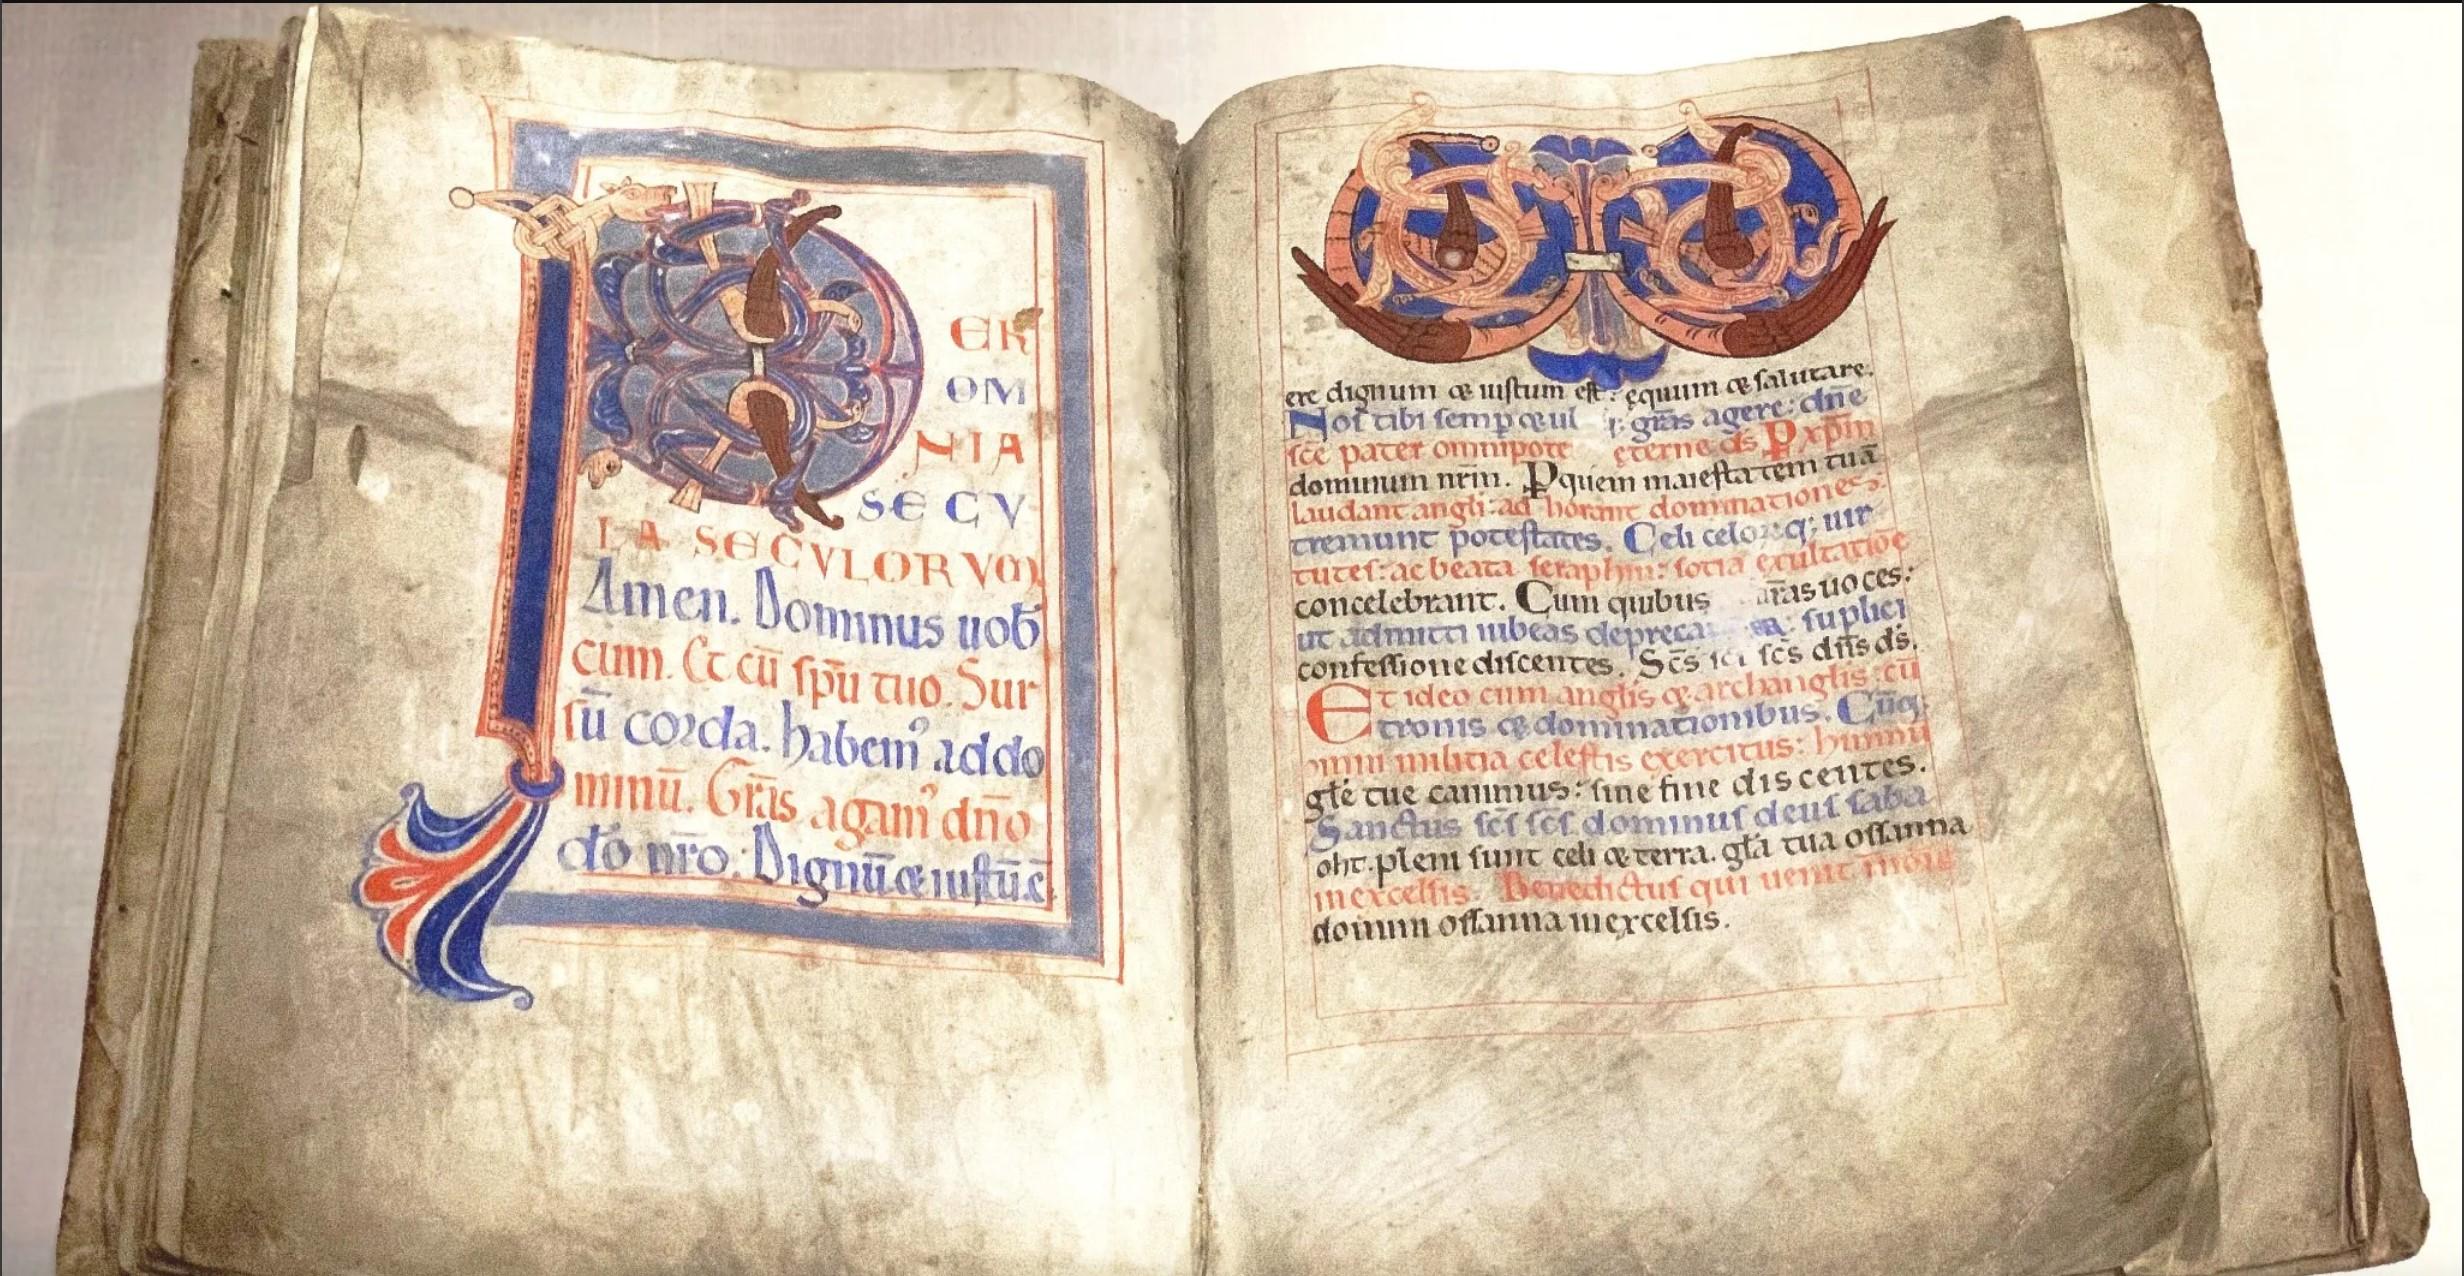 P
ER
OM
NIA
SECV
LA SECVLORVM
Amen. Dominus uob
cum. Et cū sp̄u tuo. Sur
sū corda. habemꝰ addo
minū. Gr̄as agamꝰ dn̄o
dō nr̄o. Dignū & iustū ē.
ere dignum & iustum est: ęquum & salutare.
Nos tibi semp & gr̄as agere: dn̄e
sc̄e pater omnipote ęterne ds̄ P xp̄m
dominum nr̄m. Pquem maiestatem tuā
laudant angli: adhorant dominationes.
tremunt potestates. Celi celoꝝq; uir
tutes: ac beata seraphin: sotia exultatiōe
concelebrant. Cum quibus uoces:
ut admitti iubeas depreca supplici
confessione discentes. Sc̄s sc̄s dn̄s ds̄.
Et ideo cum anglis & archanglis: cū
tronis & dominationibus. Cūq;
omni militia celestis exercitus: himnū
gl̄e tue canimus: sine fine discentes.
Sanctus sc̄s sc̄s dominus deus saba
oht. pleni sunt celi & terra. gl̄a tua ossanna
inexcelsis. Benedictus qui uenit
domini ossanna inexcelsis.